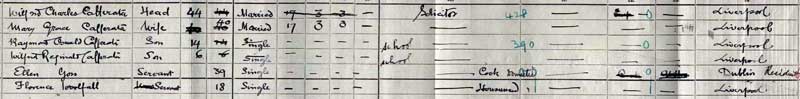 Wilfrid Charles Cafferata Head 44 Married 17 3 3 — Solicitor 428 — 0 — Liverpool
Mary Grace Cafferata Wife 40 Married 17 3 0 — — — — Liverpool
Raymond Cafferata Son 14 Single — — — — school 390 — 0 — Liverpool
Wilfrid Reginald Cafferata Son 6 Single — — — — school — — — Liverpool
Ellen Servant 39 Single — — — — Cook 0 Dublin Resident
Florence Woolfall Servant 18 Single — — — — Housemaid 1 — Liverpool